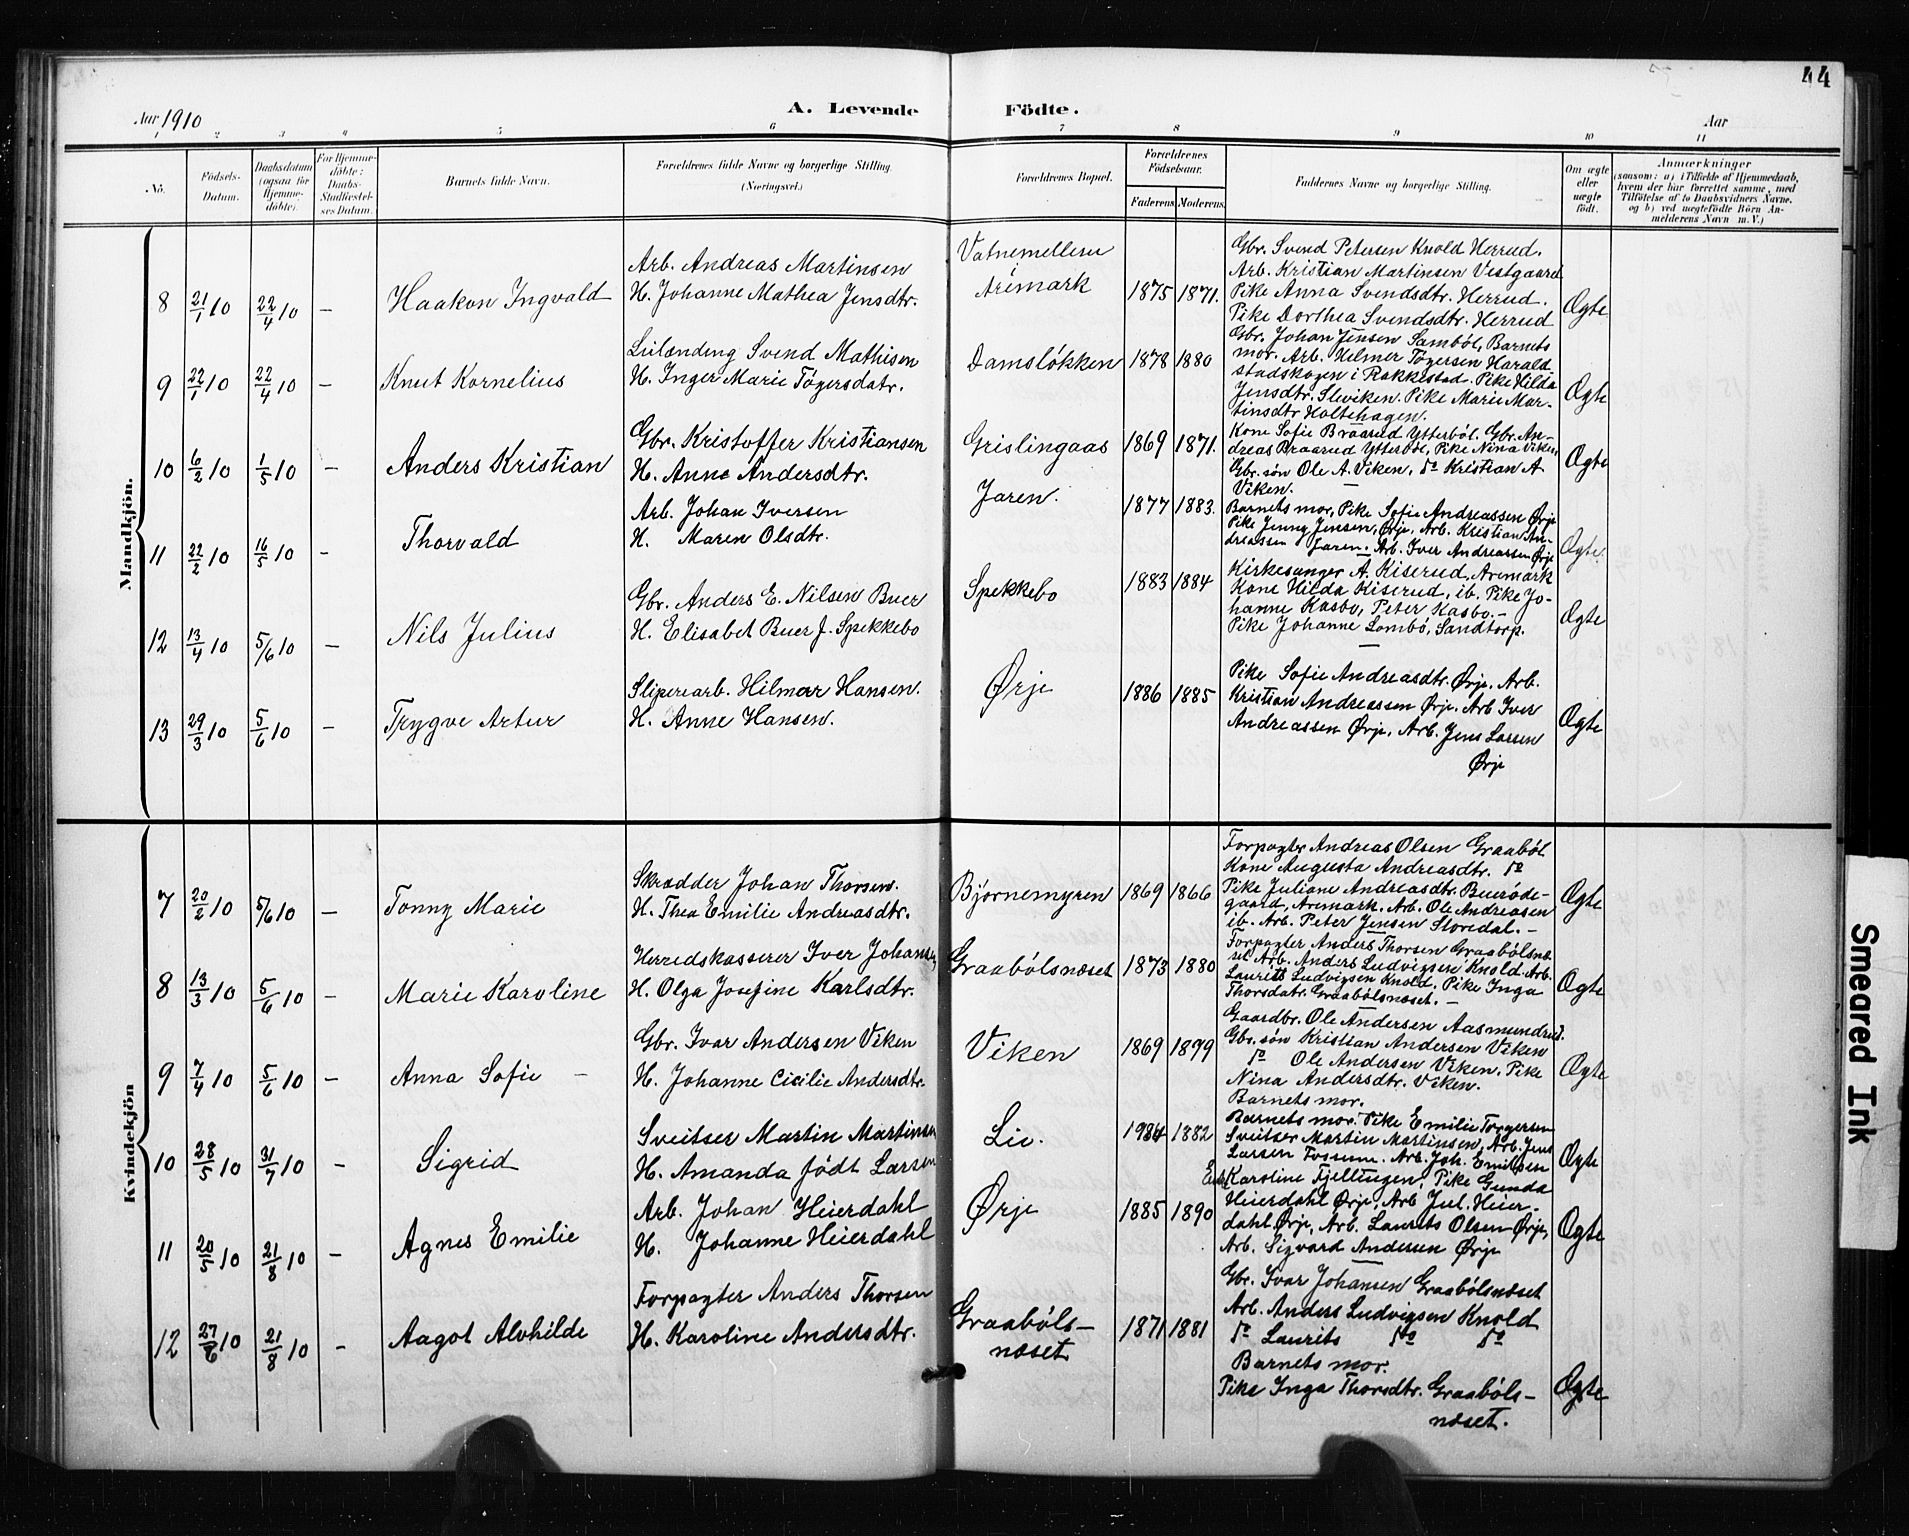 44
Aar 1910
A. Levende Födte.
Aar
1 2 3 4 5 6 7 8 9 10 11
No.
Födsels-Datum.
Daabsdatum (ogsaa for Hjemme-döbte).
For Hjemme-döbte: Daabs-Stadfæstel-ses Datum.
Barnets fulde Navn.
Forældrenes fulde Navne og borgerlige Stilling (Næringsvei.)
Forældrenes Bopæl.
Forældrenes Födselsaar.
Faderens. Moderens.
Faddernes Navne og borgerlige Stilling.
Om ægte eller uægte födt.
Anmærkninger
(saasom: a) i Tilfælde af Hjemmedaab,
hvem der har forrettet samme, med
Tilföielse af to Daabsvidners Navne.
og b) ved uægtefödte Börn An-
melderens Navn m. V.)
Mandkjön.
8 21/1 10 22/4 10 — Haakon Ingvald
Arb. Andreas Martinsen
H. Johanne Mathea Jensdtr.
Vatnemellem
i
Aremark
1875 1871.
Gbr. Svend Petersen Knold Herrud.
Arb. Kristian Martinsen Vestgaard
Pike Anna Svendsdtr. Herrud.
Pike Dorthea Svendsdtr. Herrud
Ægte
9 22/1 10 22/4 10 — Knut Kornelius
Leilænding Svend Mathisen
H. Inger Marie Tögersdatr.
Damslökken
1878 1880
Gbr. Johan Jensen Sambøl, Barnets
mor. Arb. Hilmer Tögersen Harald-
stadskogen i Rakkestad. Pike Hilda
Jensdtr. Sleviken. Pike Marie Mar-
tinsdtr Holtehagen.
Ægte
10 6/2 10 1/5 10 — Anders Kristian
Gbr. Kristoffer Kristiansen
H. Anne Andersdtr.
Grislingaas
1869 1871.
Kone Sofie Braarud Ytterbøl. Gbr. An-
dreas Braarud Ytterbøl, Pike Nina Viken,
Gbr. søn Ole A. Viken, do Kristian A
Viken.
Ægte
11 22/2 10 16/5 10 — Thorvald
Arb. Johan Iversen
H. Maren Olsdtr.
Jaren.
1877 1883.
Barnets mor, Pike Sofie Andreassen Ørje
Pike Jenny Jensen, Ørje, Arb. Kristian An-
dreassen Jaren. Arb. Iver Andreassen Ørje
Ægte.
12 13/4 10 5/6 10 — Nils Julius
Gbr. Anders E. Nilsen Buer
H. Elisabet Buer f. Spekkebo
Spekkebo
1883 1884
Kirkesanger A. Kiserud, Aremark
Kone Hilda Kiserud, ib. Pike Jo-
hanne Kasbo, Peter Kasbo. —
Pike Johanne Lombö, Sandtorp.
—
Ægte
13 29/3 10 5/6 10 — Trygve Artur
Sliperearb. Hilmar Hansen.
H. Anne Hansen.
Ørje
1886 1885
Pike Sofie Andreasdtr. Ørje. Arb.
Kristian Andreassen Ørje. Arb Iver
Andreassen Ørje, Arb. Jens Larsen
Ørje
Ægte
Kvindekjön
7 20/2 10 5/6 10 — Tonny Marie
Skrædder Johan Thorsen.
H. Thea Emilie Andreasdtr.
Bjørnemyren
1869 1866
Forpagter Andreas Olsen Graabøl
Kone Augusta Andreasdtr. do
Pike Juliane Andreasdtr. Bueröde-
gaard, Aremark. Arb. Ole Andreasen
ib. Arb. Peter Jensen Storedal. —
Ægte
8 13/3 10 5/6 10 — Marie Karoline
Herredskasserer Iver Johansen,
H. Olga Josefine Karlsdtr.
Graabølsnæset
1873 1880
Forpagter Anders Thorsen Graabølsnæ-
set Arb. Anders Ludvigsen Knold. Arb.
Laurits Ludvigsen Knold. Pike Inga
Thorsdatr. Graabølsnæset. —
Ægte
9 7/4 10 5/6 10 — Anna Sofie —
Gbr. Ivar Andersen Viken
H. Johanne Cicilie Andersdtr.
Viken
1869 1899
Gaardbr. Ole Andersen Aasmundrud.
Gbr. søn Kristian Andersen Viken
do Ole Andersen Viken, Pike
Nina Andersdtr. Viken.
Barnets mor.
Ægte
10 28/5 10 31/7 10 — Sigrid
Sveitser Martin Martinsen
H. Amanda født Larsen
Lie.
1984 1882
Barnets mor. Pike Emilie Torgersen
Sveitser Martin Martinsen, Arb. Jens
Larsen Fossum. Arb. Joh. Emilsen
Ægte
11 20/5 10 21/8 10 — Agnes Emilie
Arb. Johan Heierdahl
H. Johanne Heierdahl
Ørje
1885 1890
Karoline Fjellungen, Pike Gunda
Heierdahl Ørje, Arb. Jul. Heier-
dahl Ørje, Arb. Laurits Olsen Ørje,
Arb. Sigvard Andersen Ørje
—
Ægte
12 27/6 10 21/8 10 — Aagot Alvhilde
Forpagter Anders Thorsen
H. Karoline Andersdtr.
Graabøls-
næset
1871 1881
Gbr. Ivar Johansen Graabølsnæset
Arb. Anders Ludvigsen Knold
do Laurits do do
Barnets mor.
Pike Inga Thorsdtr. Graabøls-
næset.
Ægte
Smeared Ink